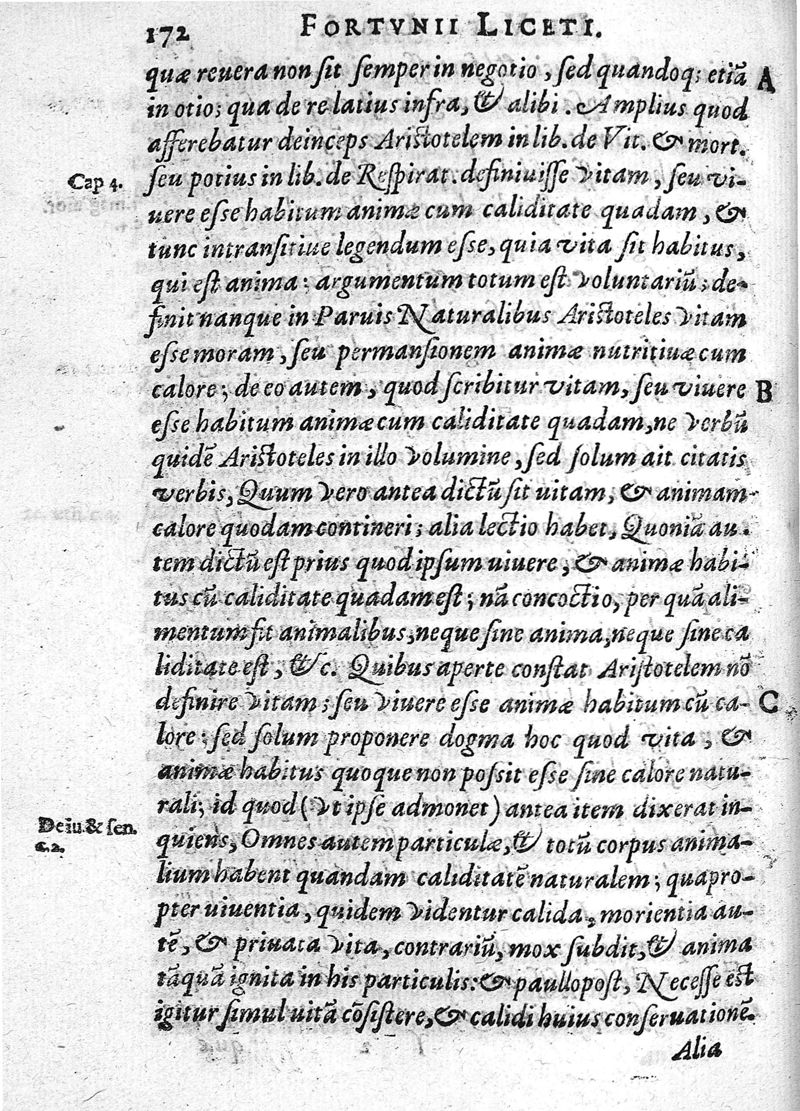 172 FORTVNII LICETI.
quæ reuera non sit semper in negotio, sed quandoq; etiã A
in otio; qua de re latius infra, & alibi. Amplius quod
afferebatur deinceps Aristotelem in lib. de Vit. & mort.
Cap 4. seu potius in lib. de Respirat. definiuisse vitam, seu vi-
uere esse habitum animæ cum caliditate quadam, &
tunc intransitiue legendum esse, quia vita sit habitus,
qui est anima: argumentum totum est voluntariũ; de-
finit nanque in Paruis Naturalibus Aristoteles vitam
esse moram, seu permansionem animæ nutritiuæ cum
calore; de eo autem, quod scribitur vitam, seu viuere B
esse habitum animæ cum caliditate quadam, ne verbũ
quidẽ Aristoteles in illo volumine, sed solum ait citatis
verbis, Quum vero antea dictũ sit uitam, & animam
calore quodam contineri; alia lectio habet, Quoniã au.
tem dictũ est prius quod ipsum uiuere, & animæ habi-
tus cũ caliditate quadam est; nã concoctio, per quã ali-
mentum fit animalibus, neque sine anima, neque sine ca
liditate est, &c. Quibus aperte constat Aristotelem nõ
definire vitam; seu viuere esse animæ habitum cũ ca- C
lore; sed solum proponere dogma hoc quod vita, &
animæ habitus quoque non possit esse sine calore natu-
rali; id quod (vt ipse admonet) antea item dixerat in-
De iu. & sen. c. 2. quiens, Omnes autem particulæ, & totũ corpus anima-
lium habent quandam caliditatẽ naturalem; quapro-
pter uiuentia, quidem videntur calida, morientia au-
tẽ, & priuata vita, contrariũ, mox subdit, & anima
tãquã ignita in his particulis: & paullopost, Necesse est
igitur simul uitã cõsistere, & calidi huius conseruationẽ.
Alia